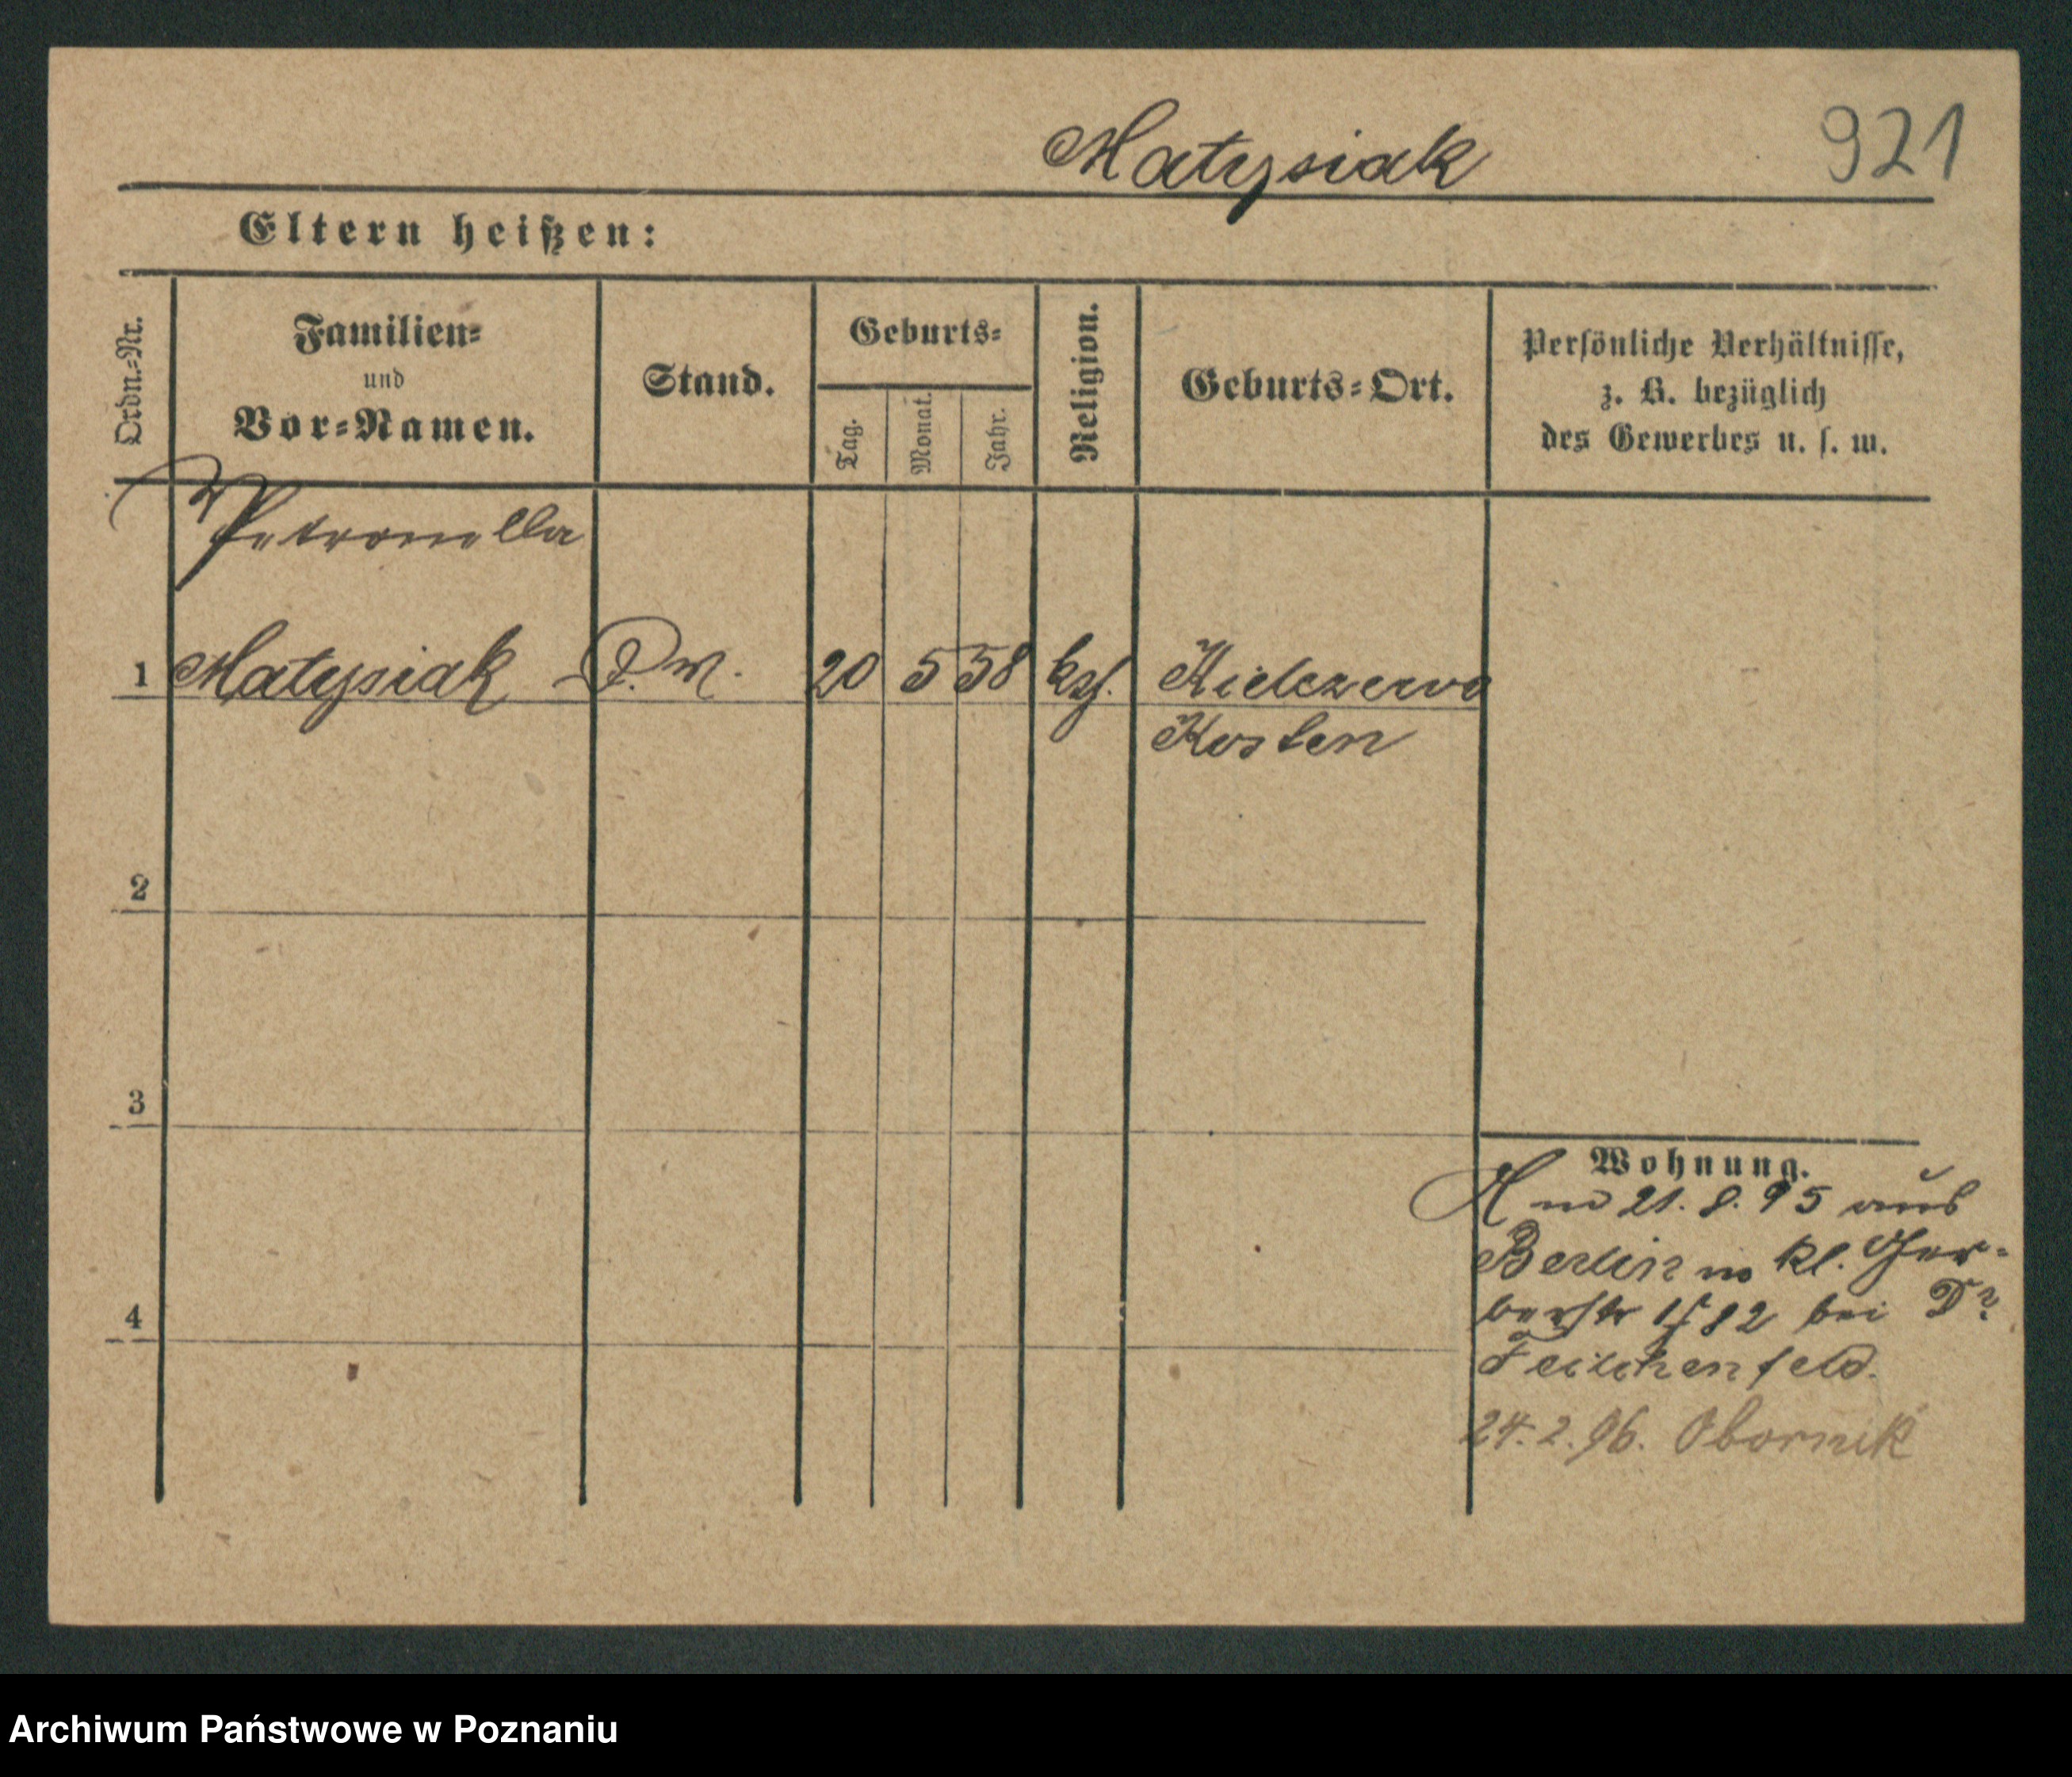 Matysiak 921
Eltern heißen:
Ordn.-Nr.
Familien-
und
Vor-Namen.
Stand.
Geburts-
Tag.
Monat.
Jahr.
Religion.
Geburts-Ort.
Persönliche Verhältnisse,
z. B. bezüglich
des Gewerbes u. s. w.
Petronella
1 Matysiak 20 5 58 kth. Kielczewo
Kosten
2
3
4
Wohnung.
21. 8. 95 aus
Berlin no kl. Ger-
berstr bei Dr
Feilchenfeld.
24. 2. 96. Obornik
Archiwum Państwowe w Poznaniu